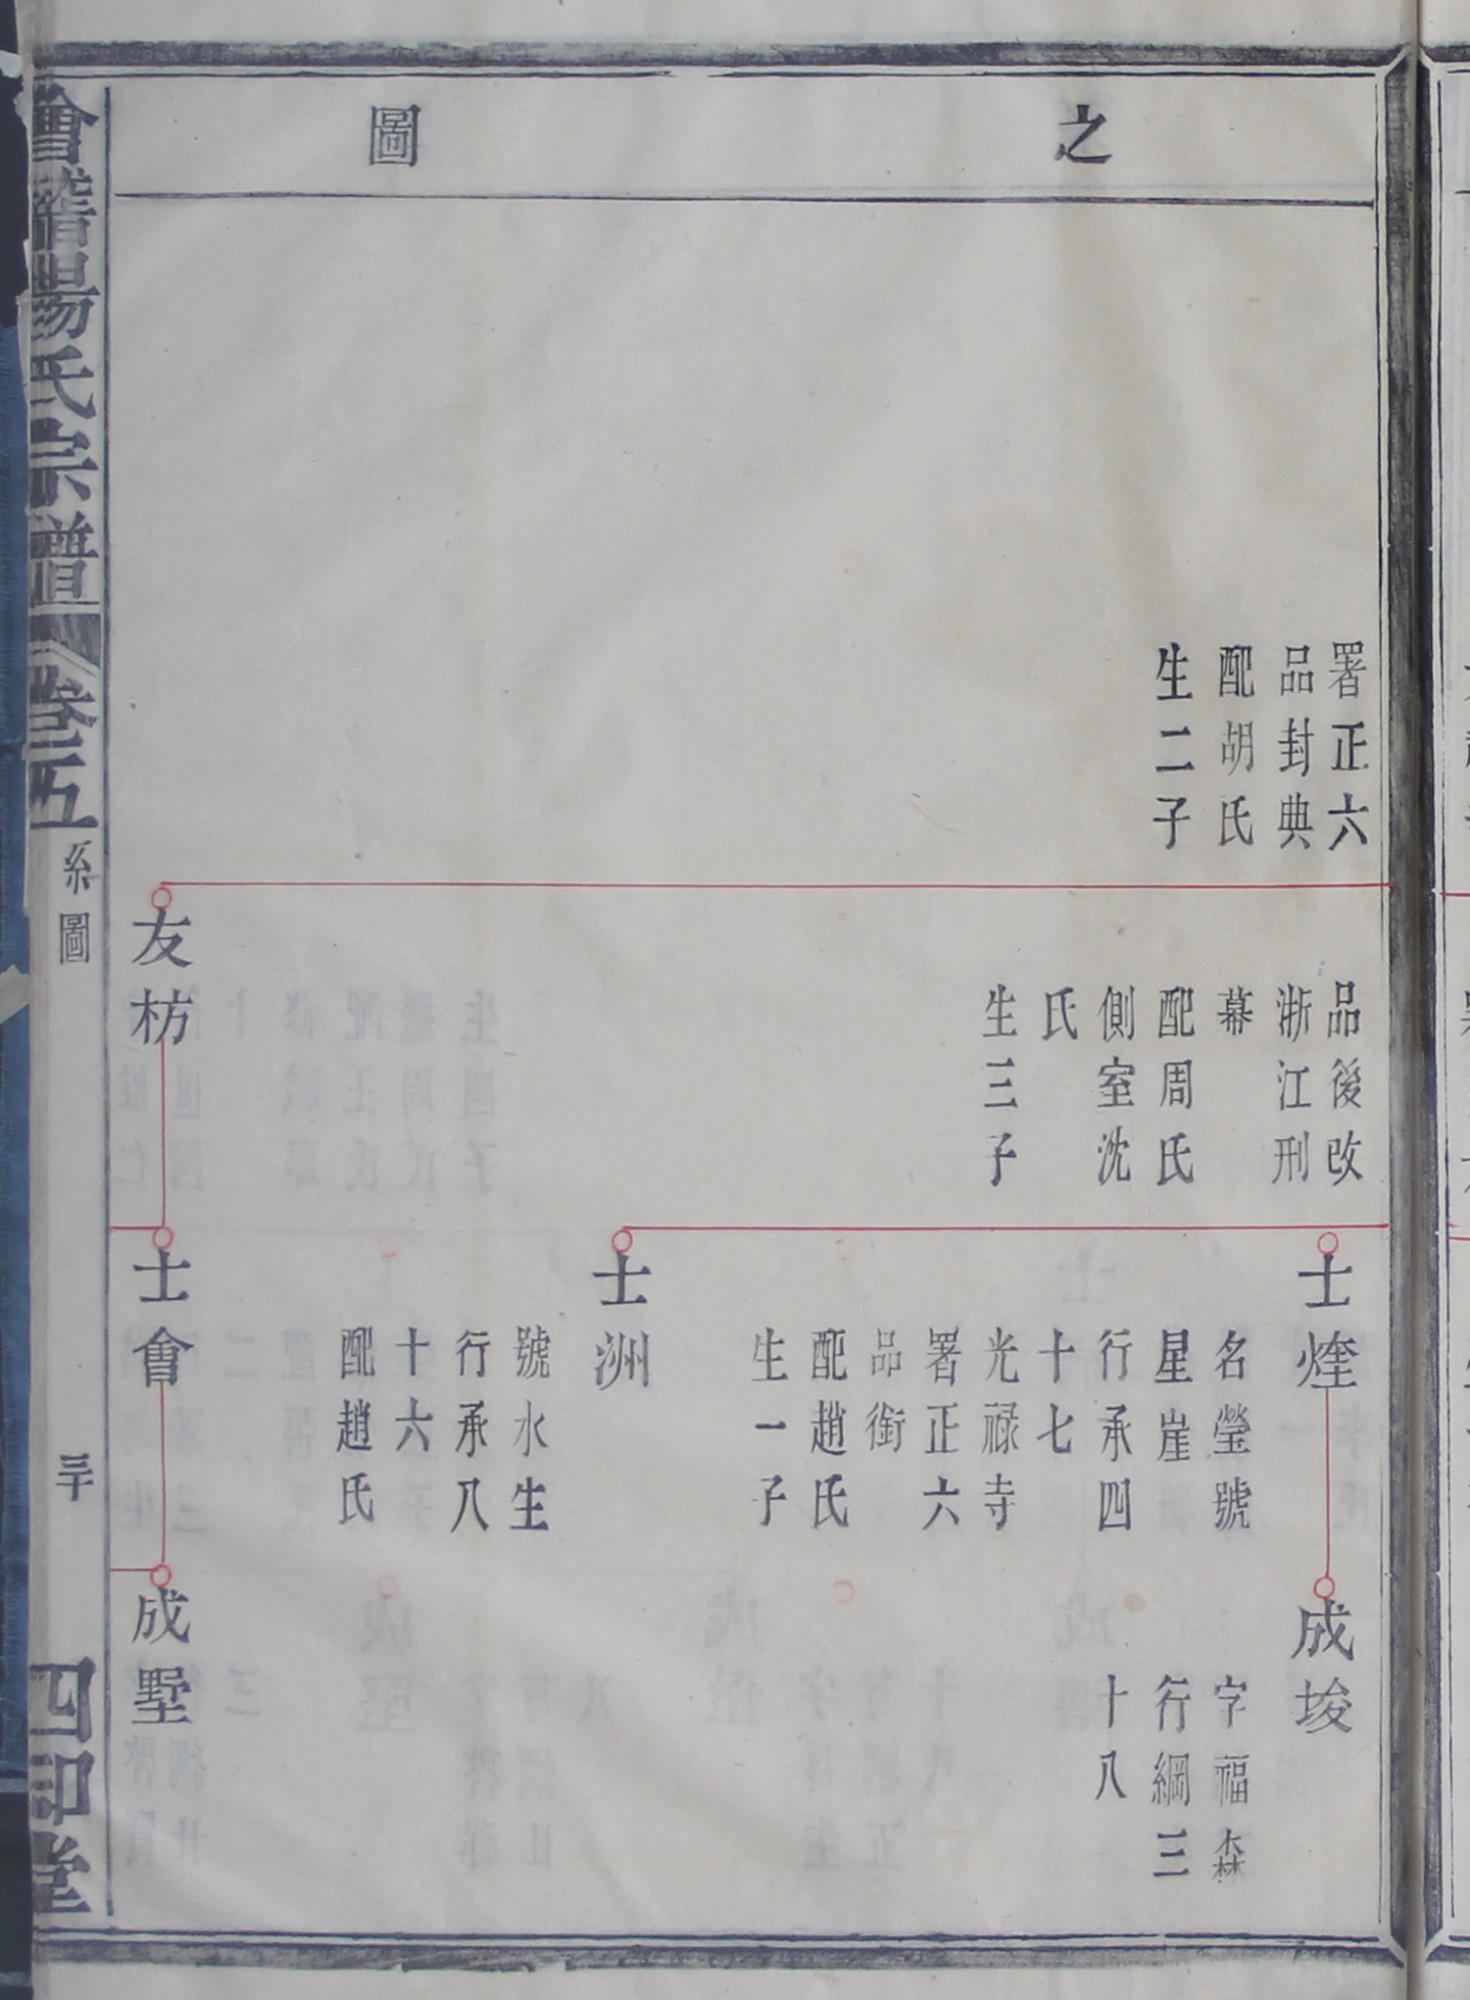 之
圖
署正六
品封典
配胡氏
生二子
品後改
浙江刑
幕
配周氏
側室沈
氏
生三子
友枋
士煃
名瑩號
星崖
行承四
十七
光禄寺
署正六
品銜
配趙氏
生一子
士洲
號水生
行承八
十六
配趙氏
士會
成埈
字福森
行綱三
十八
成墅
會稽楊氏宗譜
卷五
系圖
三十
四知堂